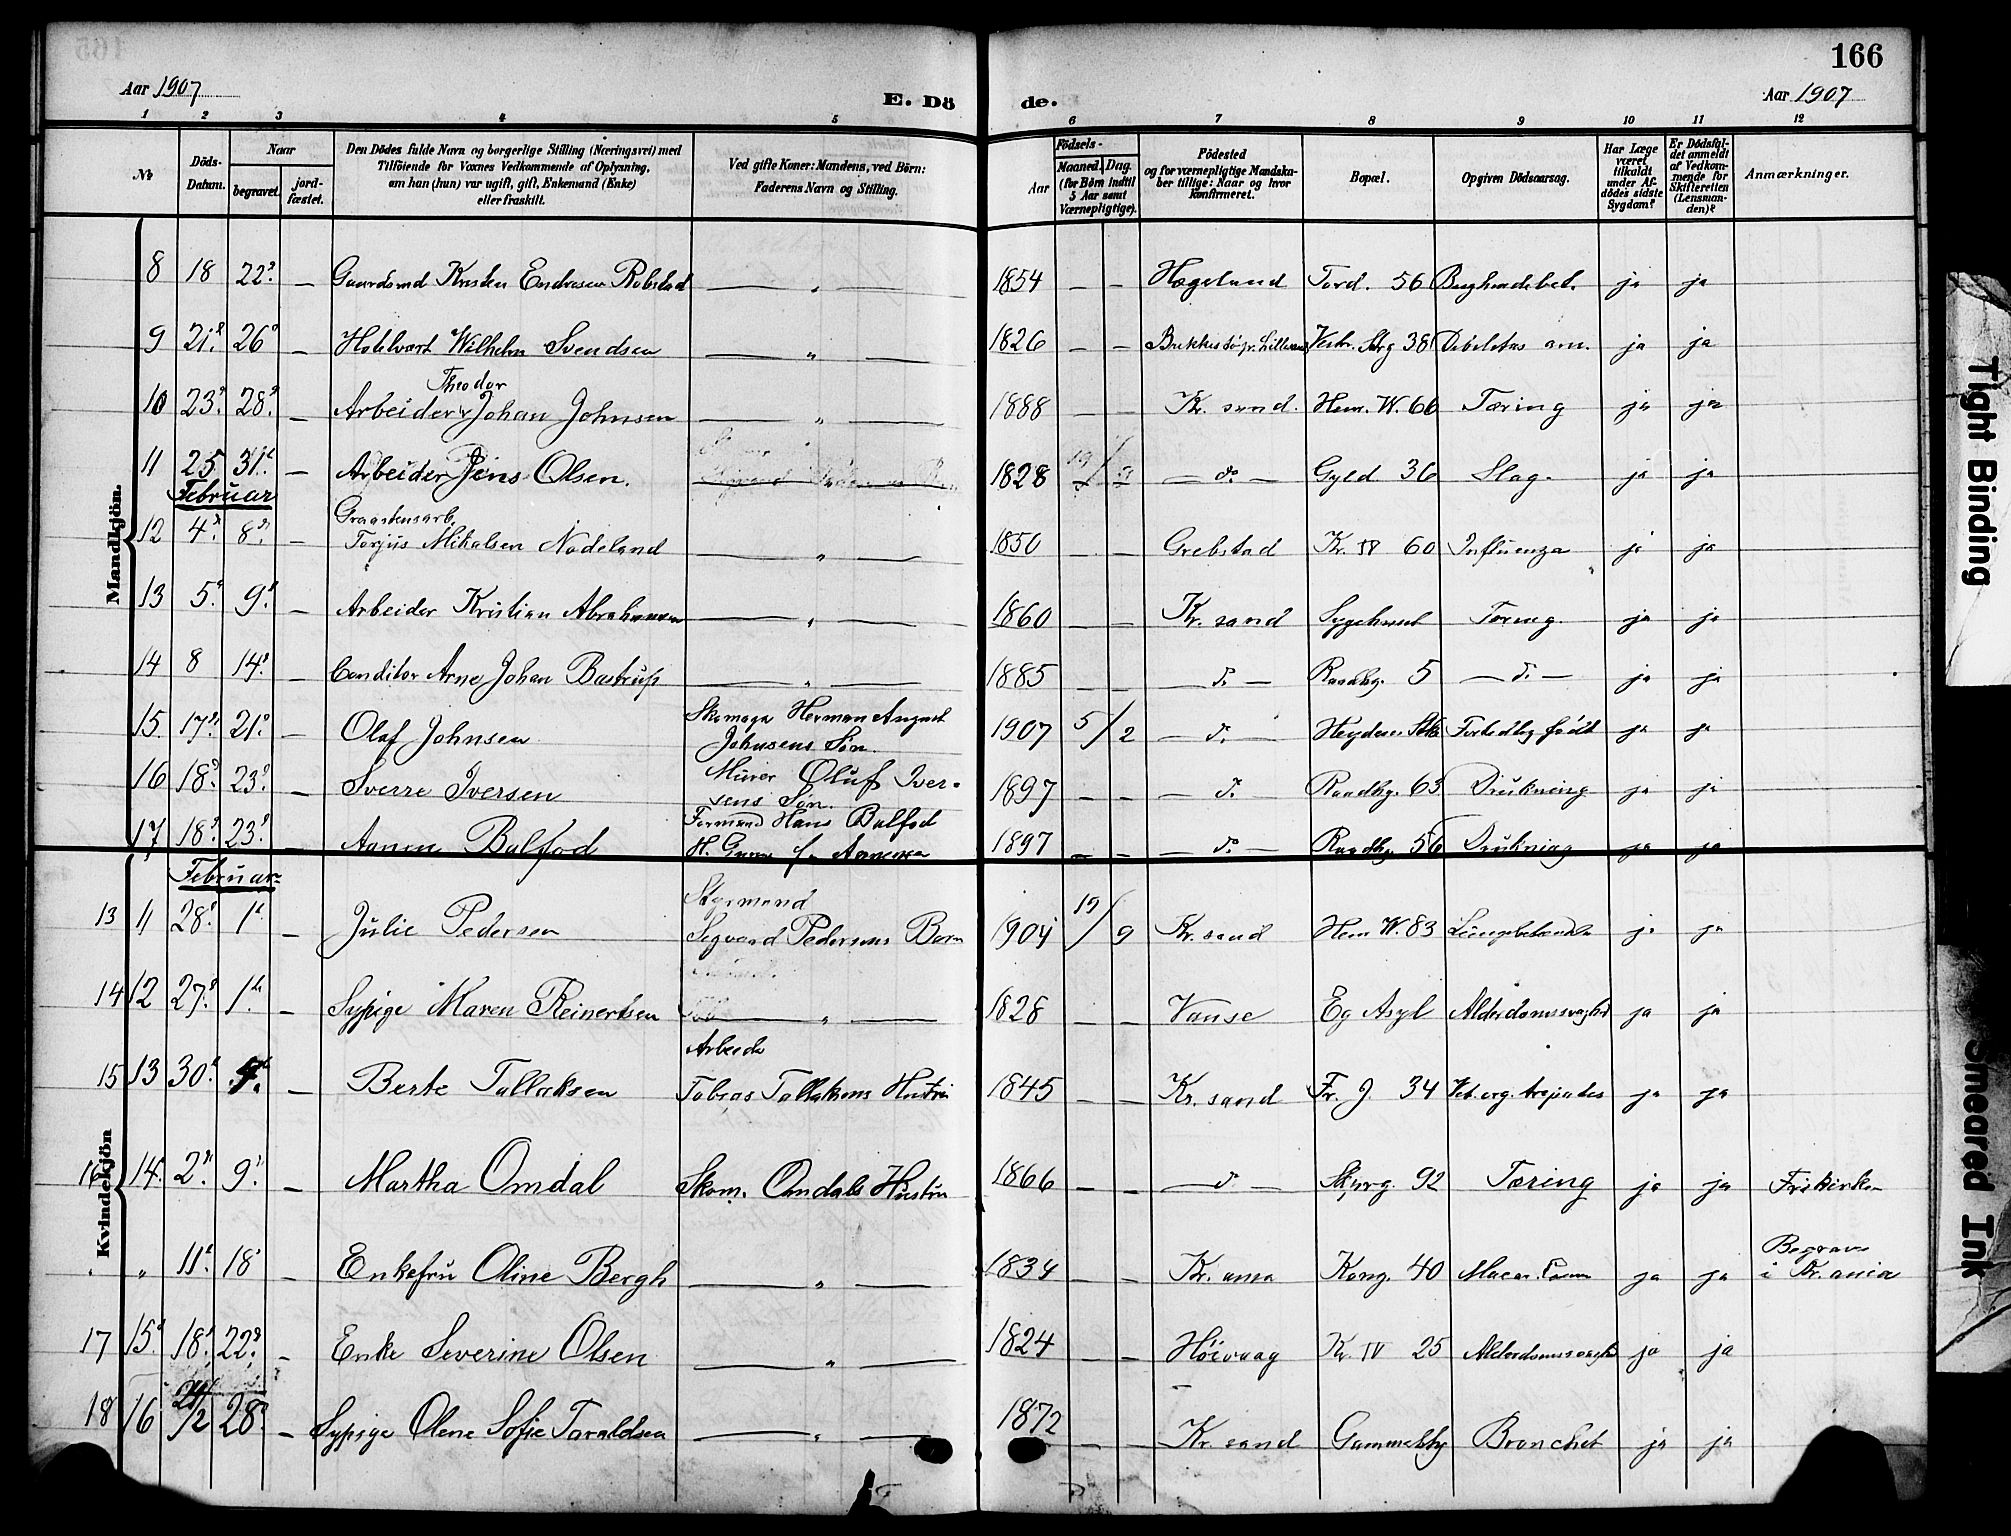 166
Aar 1907
E. Dö
de.
Aar 1907
1 2 3 4 5 6 7 8 9 10 11 12
No
Döds-
Datum.
Naar
begravet.
jord-
fæstet.
Den Dödes fulde Navn og borgerlige Stilling (Næringsvei) med
Tilföiende for Voxnes Vedkommende af Oplysning,
om han (hun) var ugift, gift, Enkemand (Enke)
eller fraskilt.
Ved gifte Koner: Mandens, ved Börn:
Faderens Navn og Stilling.
Födsels-
Aar
Maaned.
Dag.
(for Börn indtil
5 Aar samt
Værnepligtige).
Födested
og for værnepligtige Mandska-
ber tillige: Naar og hvor
konfirmeret.
Bopæl.
Opgiven Dödsaarsag.
Har Læge
været
tilkaldt
under Af-
dödes sidste
Sygdom?
Er Dödsfal-
det anmeldt
af Vedkom-
mende for
Skifteretten
(Lensman-
den)?
Anmærkninger.
Mandkjön.
8 18 22 — Gaardmd Kristen Endresen Robstad — „ — 1854 — — Hægeland Tord. 56 ja ja
9 21 26 — Wilhelm Svendsen — „ — 1826 — — 38 ja ja
Theodor
10 23 28 — Arbeider Johan Johnsen — „ — 1888 — — Kr. sand. Hen. W. 66 Tæring ja ja
11 25 31 — Arbeider Jens Olsen. 1828 — do — Gyld 36 Slag. ja ja
Februar
Graastensarb.
12 4 8 — Torjus Mikalsen Nodeland — „ — 1850 — — Grebstad Kr. IV 60 Influenza ja ja
13 5 9 — Arbeider Kristian Abrahamsen — „ — 1860 — — Kr. sand Sygehuset Tæring. ja ja
14 8 14 — Conditor Arne Johan Bastrup — „ — 1885 — — — do — Raadhg. 5 — do — ja ja
Skomager Herman August
15 17 21 — Olaf Johnsen Johnsens Søn. 1907 5/2 — do — født ja ja
Murer Oluf Iver-
16 18 23 — Sverre Iversen sens Søn. 1897 — — — do — Raadhg. 63 Drukning ja ja
Formand Hans Balfod
17 18 23 — Balfod 1897 — — — do — Raadhg. 56 Drukning ja ja
Kvindekjön
Februar
Styrmand
13 11 28 1 — Julie Pedersen Sigvard Pedersens Barn 1904 19/9 Kr. sand Hen W. 83 ja ja
14 12 27 1 — Sypige Maren Reinertsen — „ — 1828 — — Vanse Eg Asyl Alderdomssvaghed ja ja
Arbeider
15 13 30 — Berte Tallaksen Tobias Tallaksens Hustru 1845 — — Kr. sand Fr. J. 34 ja ja
16 14 2 9 — Martha Omdal Skom. Omdals Hustru 1866 — — — do — Skyrg. 92 Tæring ja ja Frikirken
„ 11 18 — Enkefru Oline Bergh — „ — 1834 — — Kr. ania Kong. 40 ja ja Begravet
i Kr. ania
17 15 18 22 — Enke Severine Olsen — „ — 1824 — — Høivaag Kr. IV 25 Alderdomssvaghed ja ja
18 16 24/2 28 — Sypige Olene Sofie Taraldsen — „ — 1872 — — Kr. sand Gammelby Bronchet ja ja
Tight Binding
Smeared Ink